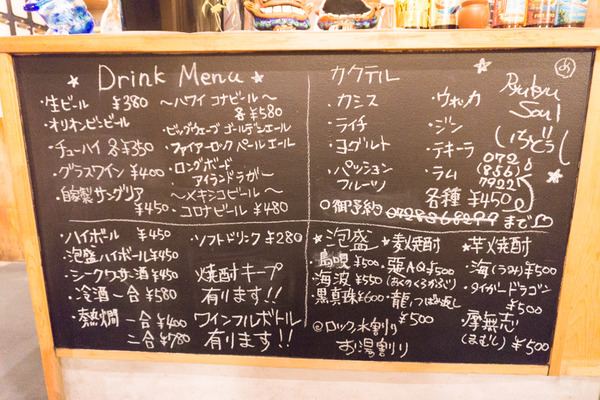 ★ Drink Menu ★
・生ビール ¥380
・オリオンビンビール
・チューハイ 各¥350
・グラスワイン ¥400
・自家製サングリア
¥450
〜ハワイ コナビール〜
各¥580
・ビッグウェーブ ゴールデンエール
・ファイアーロック ペールエール
・ロングボード
アイランドラガー
〜メキシコビール〜
・コロナビール ¥480
カクテル
・カシス
・ライチ
・ヨーグルト
・パッション
フルーツ
・ウォッカ
・ジン
・テキーラ
・ラム
各種 ¥450
Ryukyu
Soul
いちどぅし
072
(856)
7922
○御予約
まで
・ハイボール ¥450
・泡盛ハイボール¥450
・シークワサー酒¥450
・冷酒一合¥580
・熱燗 一合¥400
二合¥780
・ソフトドリンク ¥280
焼酎キープ
有ります!!
ワインフルボトル
有ります!!
★泡盛
・島唄 ¥500
・海波 ¥550
・黒真珠¥600
★麦焼酎
・悪AQ¥500
・龍つば返し
¥500
★芋焼酎
・海(うみ)¥500
・タイガードラゴン
¥500
・摩無志
(まむし) ¥500
ロック、水割り
お湯割り